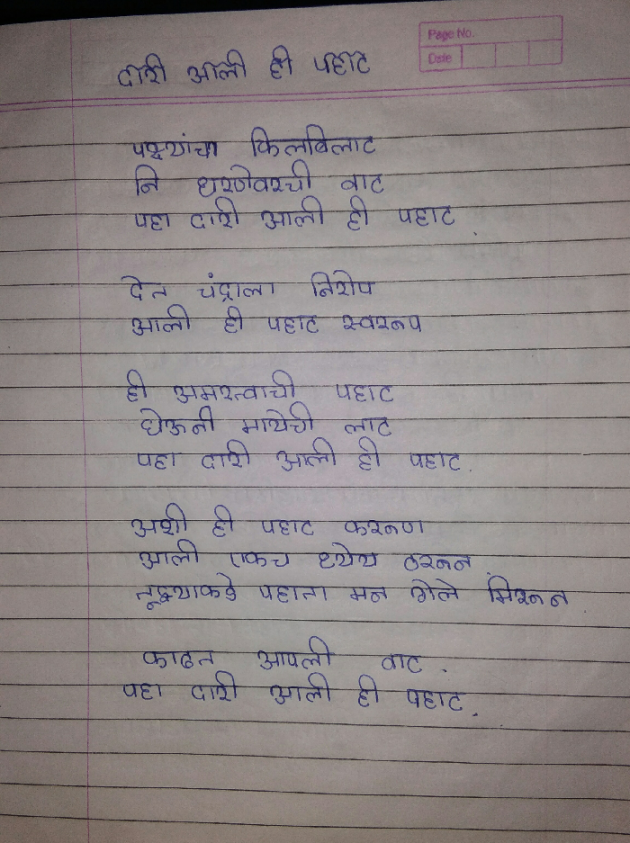 Page No.
Date
दारी आली ही पहाट
पक्ष्यांचा किलबिलाट
नि धरणेवरची वाट
पहा दारी आली ही पहाट.
देत चंद्राला निरोप
आली ही पहाट स्वरूप
ही अमरत्वाची पहाट
घेऊनी मायेची लाट
पहा दारी आली ही पहाट.
अशी ही पहाट करूण
आली एकच ध्येय ठरून.
तूझ्याकडे पहाता मन गेले भिरून.
काढत आपली वाट.
पहा दारी आली ही पहाट.